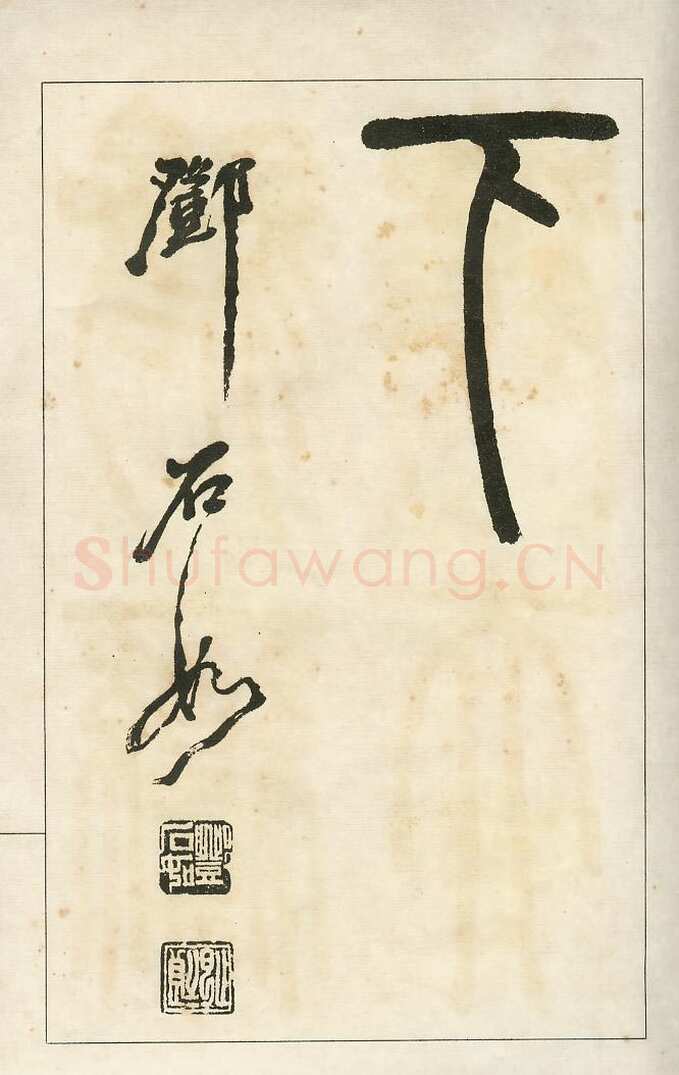 下
鄧石如
Shufawang.CN